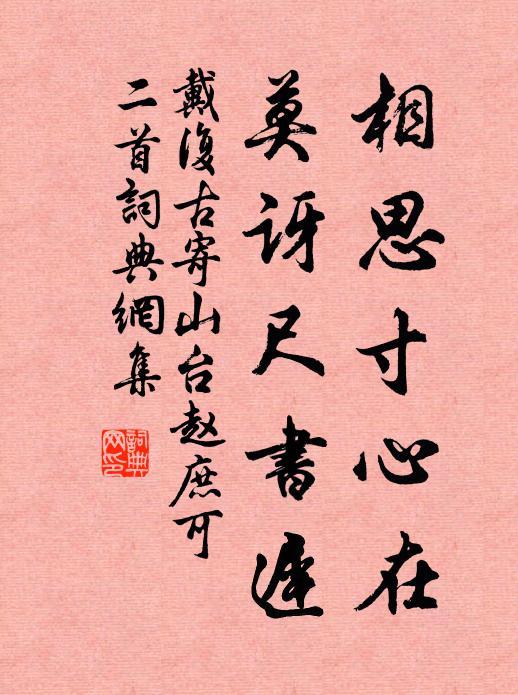 相思寸心在
莫讶尺書遲
戴復古寄山台赵庶可
二首詞典網集
詞典網印